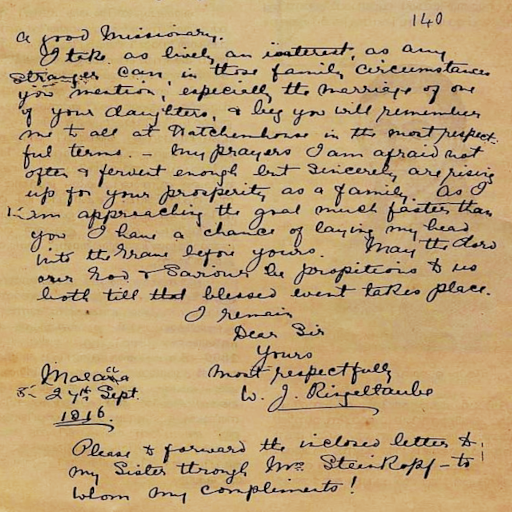 140
a good Missionary.
I take as lively an interest, as any
stranger can, in those family circumstances
you mention, especially the marriage of one
of your daughters, & beg you will remember
me to all at Hatchenhouse in the most respect-
ful terms. – My prayers I am afraid not
often & fervent enough but sincerely are rising
up for your prosperity as a family. as I
am approaching the goal much faster than
you I have a chance of laying my head
into the Grave before yours. May the Lord
our God & Saviour be propitious to us
both till that blessed event takes place.
I remain
Dear Sir
Yours
most respectfully
W. J. Ringeltaube
27th Sept.
1816.
Please to forward the inclosed letter to
my Sister through Mr. Steinkopf – to
whom my compliments!